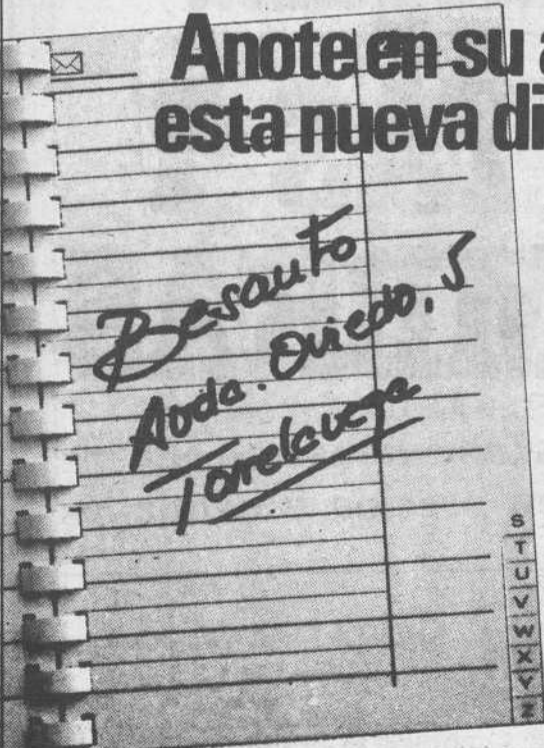 Anote en su a
esta nueva di
Besauto
Avda. Oviedo, 5
Torrelavega
S
T
U
V
W
X
Y
Z